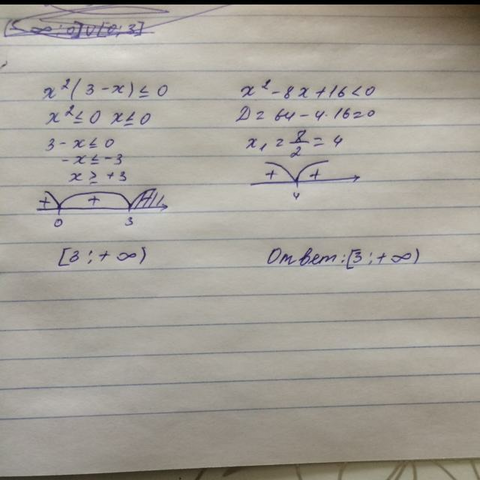 x²(3-x) ≤ 0
x² ≤ 0 x ≤ 0
3-x ≤ 0
-x ≤ -3
x ≥ +3
+ +
0 3
[3; +∞)
x² - 8x + 16 < 0
D = 64 - 4·16 = 0
x₁ = 8/2 = 4
+ +
4
Ответ: [3; +∞)